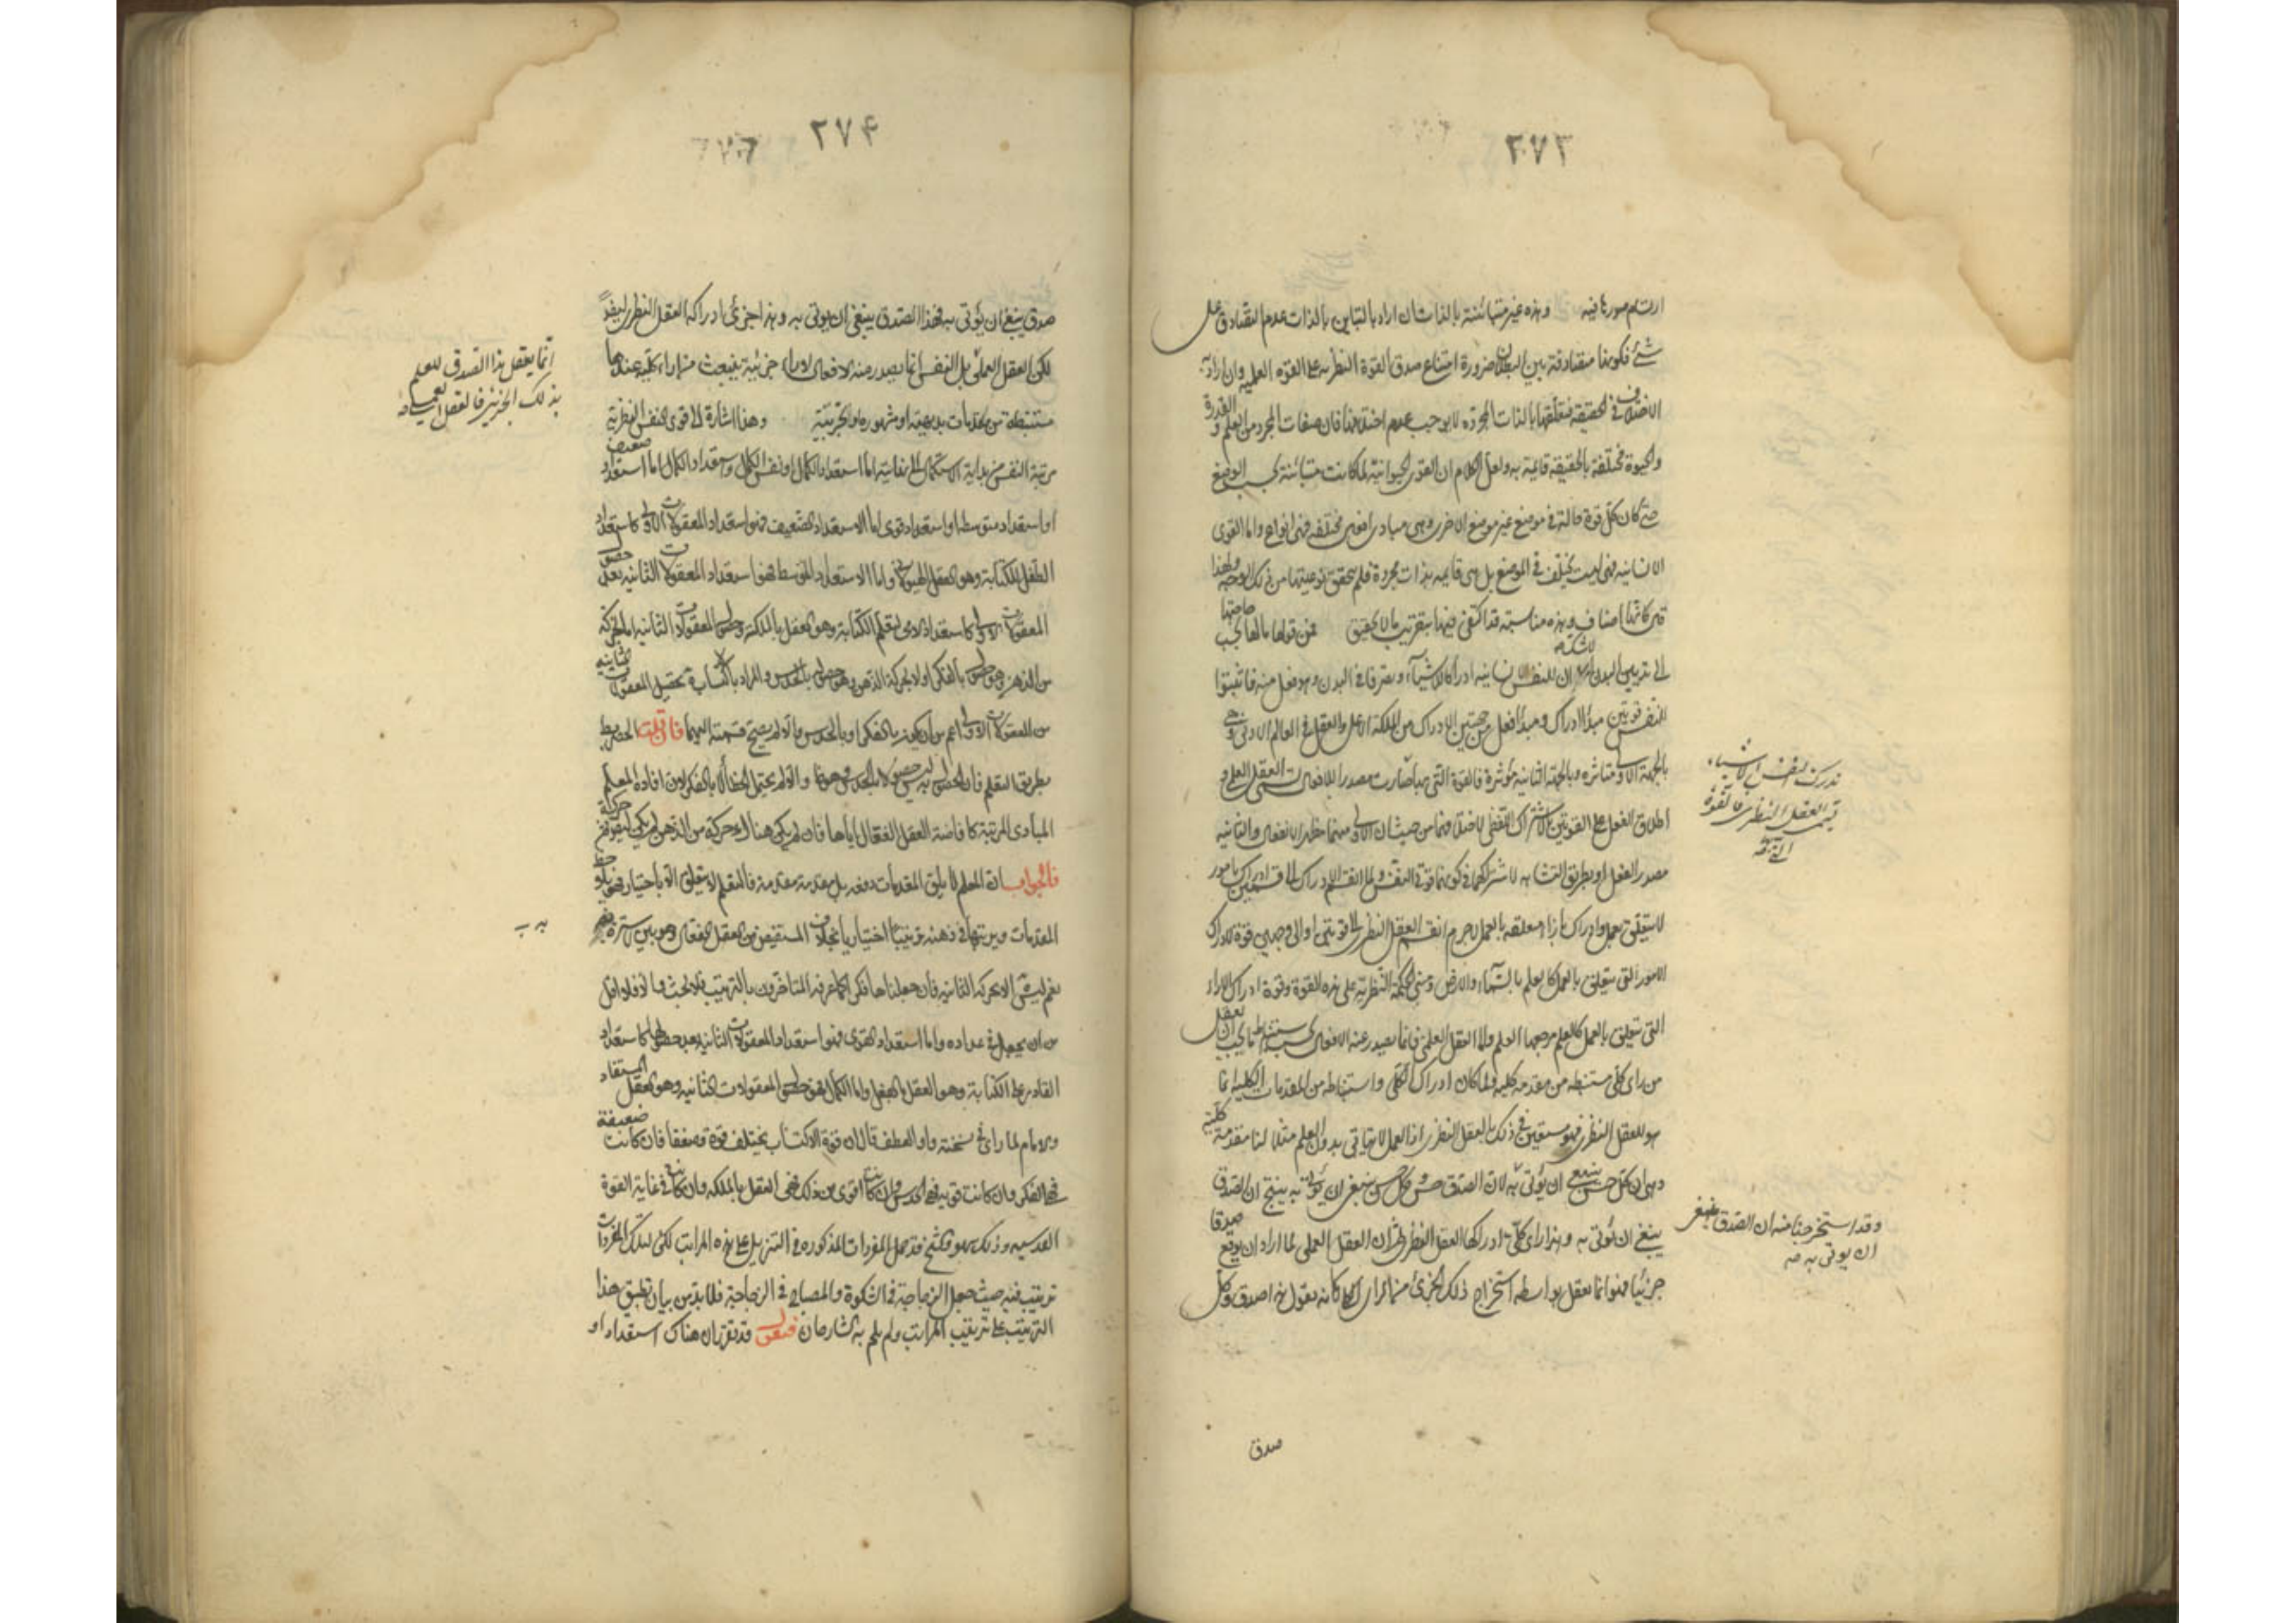 ٢٧٣
ارتسام صورها فيه وهذه غير متباينة بالذات ان اراد بالتباين بالذات عدم التصادق على
شئ فكونها متصادقة بين البطلان ضرورة امتناع صدق القوة النظرية على القوة العملية وان اراد به
الاختلاف في الحقيقة فتعلقها بالذات المجردة لا يوجب عدم اختلافها فان صفات المجرد من العلم والقدرة
والحيوة مختلفة بالحقيقة قائمة به ولعل الكلام ان القوى الحيوانية لما كانت متباينة بحسب الوضع
حتى كان كل قوة حالة في موضع غير موضع الاخرى وهي مبادى افعال مختلفة فهى انواع واما القوى
الانسانية فهى ليست يختلف في الموضع بل هى قايمه بذات مجردة فلم يتحقق نوعيتها من ذلك الوجه ولهذا
قال كانها اصناف وهذه مناسبة قد اكتفى فيها بتقريب ما لا بتحقيق فمن قواها مالها بحسب حاجتها
الى تدبير البدن لاشك ان للنفس الانسانية ادراكا للاشياء وتصرفا في البدن وهو فعل منه فاثبتوا
للنفس قوتين مبدأ ادراك ومبدأ فعل من جهتين الادراك من الملكة الاعلى والفعل في العالم الادنى فهى
بالجهة الاولى متاثره وبالجهة الثانيه مؤثرة فالقوة التى بها صارت مصدرا للافعال تسمى العقل العملى و
اطلاق العقل على القوتين بالاشتراك اللفظى لاختلافهما من حيث ان الاولى منهما مظهر الانفعال والثانيه
مصدر الفعل او بطريق التشابه لاشتراكهما في كونهما قوة النفس ولما انقسم الادراك الى قسمين ادراك بامور
لا يتعلق بعمل وادراك بآراء متعلقه بالعمل لاجرم انقسم العقل النظرى الى قوتين او الى وجهين قوة لادراك
الامور التى لا يتعلق بالعمل كالعلم بالسماء والارض ومبنى الحكمة النظرية على هذه القوة وقوة ادراك الاراء
التى يتعلق بالعمل كالعلم بوجه العلم واما العقل العملى فانما يصدر عنه الافعال بحسب استنباط ما يجب ان يفعل
من راى كلى مستنبط من مقدمه كليه ولما كان ادراك الكلى واستنباطه من المقدمات الكليه انما
هو للعقل النظرى فهو مستعين في ذلك بالعقل النظرى اذ العمل لا يتأتى بدون العلم مثلا لنا مقدمة كلية
وهى ان كل حسن ينبغي ان يؤتى به لان الصدق حسن وكل حسن ينبغي ان يؤتى به ينتج ان الصدق
ينبغى ان يؤتى به وهذا راى كلى ادركها العقل النظرى ثم ان العقل العملى لما اراد ان يوقع صدقا
جزئيا فهو انما يفعل بواسطه استخراج ذلك الجزئى من الراى الكلى كانه يقول هذا صدق وكل
صدق
تدرك النفس الاشياء
يسمى العقل النظرى فالقوة
وقد استخرجنا منه ان الصدق ينبغى
ان يوتى به صه
٢٧۴
صدق ينبغى ان يؤتى به فهذا الصدق ينبغى ان يؤتى به وهذا جزئى ادراكه العقل النظرى ايضا
لكن العقل العملى بل النفس انما يصدر منه الافعال لاراء جزئية ينبعث من اراء كلية عندها
مستنبطة من مقدمات بديهية او مشهوره او تجربية وهذا اشارة الى قوى النفس النظرية
مرتبة النفس من بداية الاستكمال الى نهايته اما استعداد الكمال او نفس الكمال واستعداد الكمال اما استعداد ضعيف
او استعداد متوسط او استعداد قوى اما الاستعداد الضعيف فهو استعداد المعقولات الاولى كاستعداد
الطفل للكتابة وهو العقل الهيولانى واما الاستعداد المتوسط فهو استعداد المعقولات الثانيه بعد حصول
المعقولات الاولى كاستعداد الامى لتعلم الكتابة وهو العقل بالملكة وحصول المعقولات الثانيه اما بحركة
من الذهن وهو حصول بالفكر اولا بحركة الذهن وهو حصول بالحدس والمراد بالاكتساب تحصيل المعقولات الثانيه
من المعقولات الاولى اعم من ان يكون بالفكر او بالحدس والا لم يصح قسمته اليهما فان قلت الحصر
بطريق التعلم فان الحصول به ليس حصولا بالحدس وهو والا لم يحتمل الخطأ ولا بالفكر لان افاده المعلم
المبادى المرتبة كافاضة العقل الفعال اياها فان لم يكن هناك حركة من الذهن لم يكن حركة
فالجواب ان المعلم لا يلقى المقدمات دفعه بل مقدمة مقدمة فالمتعلم لا يتعلق الا باختيار
المقدمات ويرتبها في ذهنه ترتيبا اختياريا بخلاف المستفيض من العقل الفعال وهو بين لا سترة فيه
نعم ليس الا الحركة الثانيه فان جعلناها فكرا كما عرفه المتاخرون بالترتيب فلا بحث والا فلا اقل
من ان يجعل في عداده واما استعداد القوى فهو استعداد المعقولات الثانيه بعد حصولها كاستعداد
القادر على الكتابة وهو العقل بالفعل واما الكمال فهو حصول المعقولات الثانيه وهو العقل المستفاد
والامام لما راى في نسخته واو العطف قال ان قوة الاكتساب يختلف قوة وضعفا فان كانت ضعيفة
فهى الفكر وان كانت قوية فهى الحدس وان كانت اقوى من ذلك فهى العقل بالملكه وان كانت في غاية القوة
القدسيه وذلك سهو والشيخ قد حمل المفردات المذكوره في التنزيل على هذه المراتب لكن لتلك المفردات
ترتيب فيه حيث جعل الزجاجة في المشكوة والمصباح في الزجاجة فلابد من بيان تطبيق هذا
الترتيب على ترتيب المراتب ولم يلم به الشارحان فنقول قد تقرر ان هناك استعداد او
انما يعقل هذا الصدق للعلم
بذلك الجزئى فالعقل